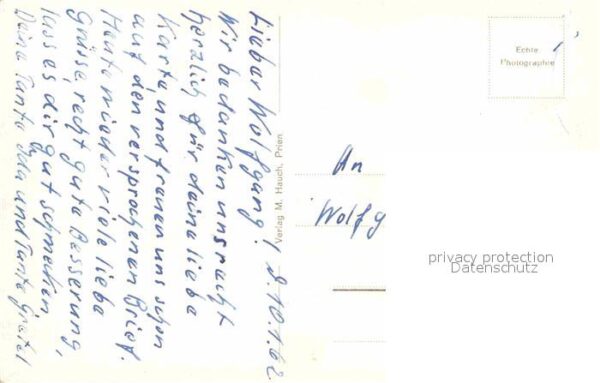 Lieber Wolfgang! d. 10.1.62.
Wir bedanken uns recht
herzlich für deine liebe
Karte, und freuen uns schon
auf den versprochenen Brief.
Heute wieder viele liebe
Grüsse, recht gute Besserung,
lass es dir gut schmecken
Deine Tante Ida und Tante Gretel
Verlag M. Hauch, Prien.
Echte
Photographie
An
Wolfg
privacy protection
Datenschutz